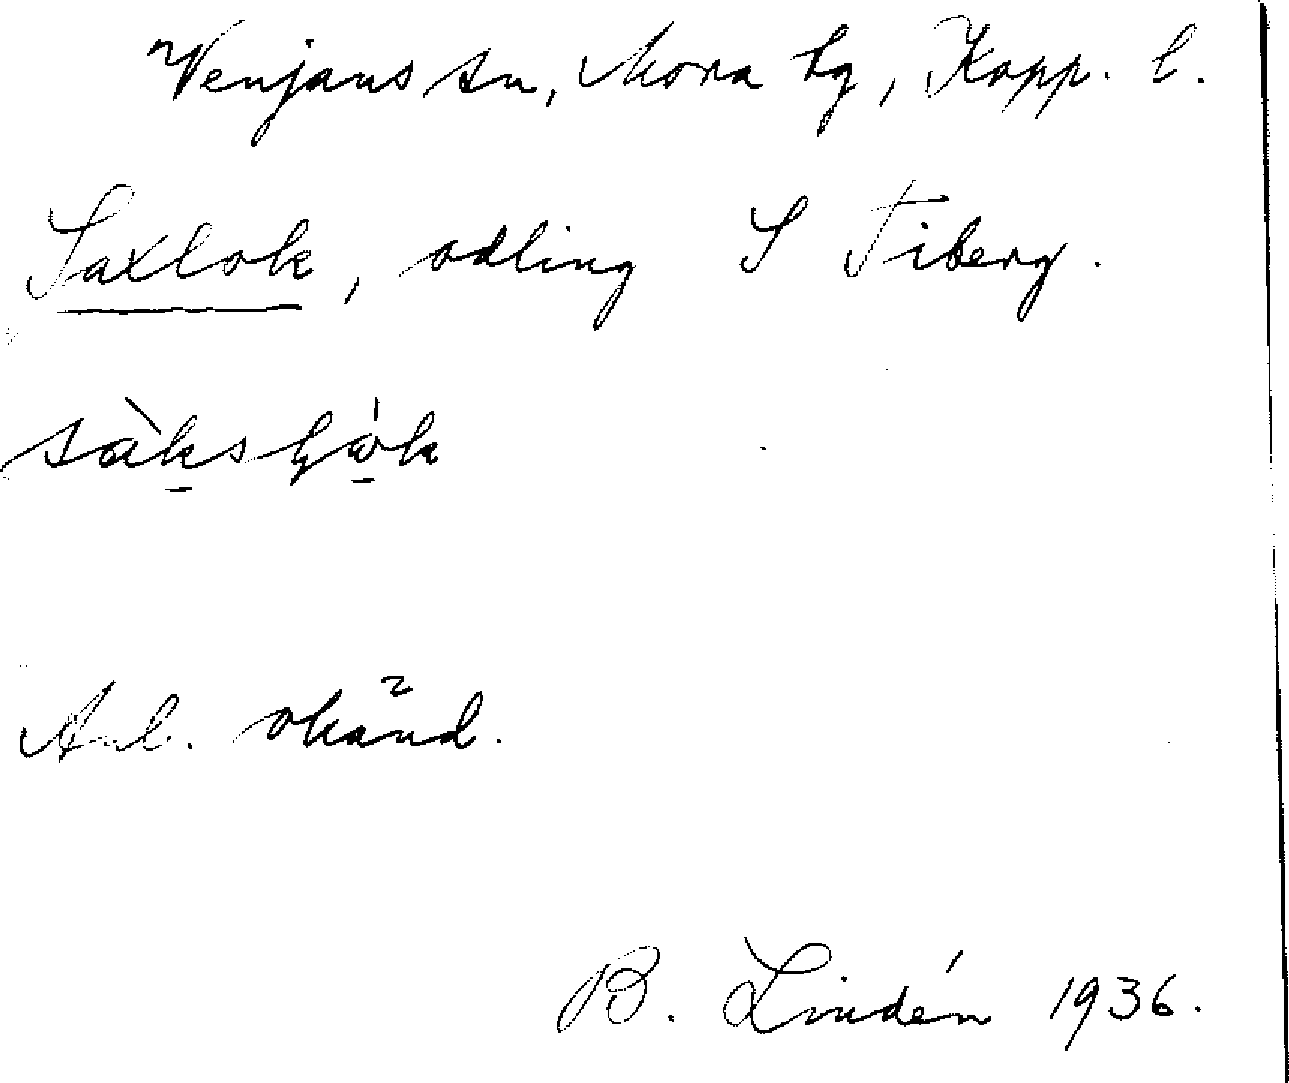 Venjans sn, Mora tg, Kopp. l.
Saxlok, odling S Tiberg.
Anl. okänd.
B. Lindén 1936.